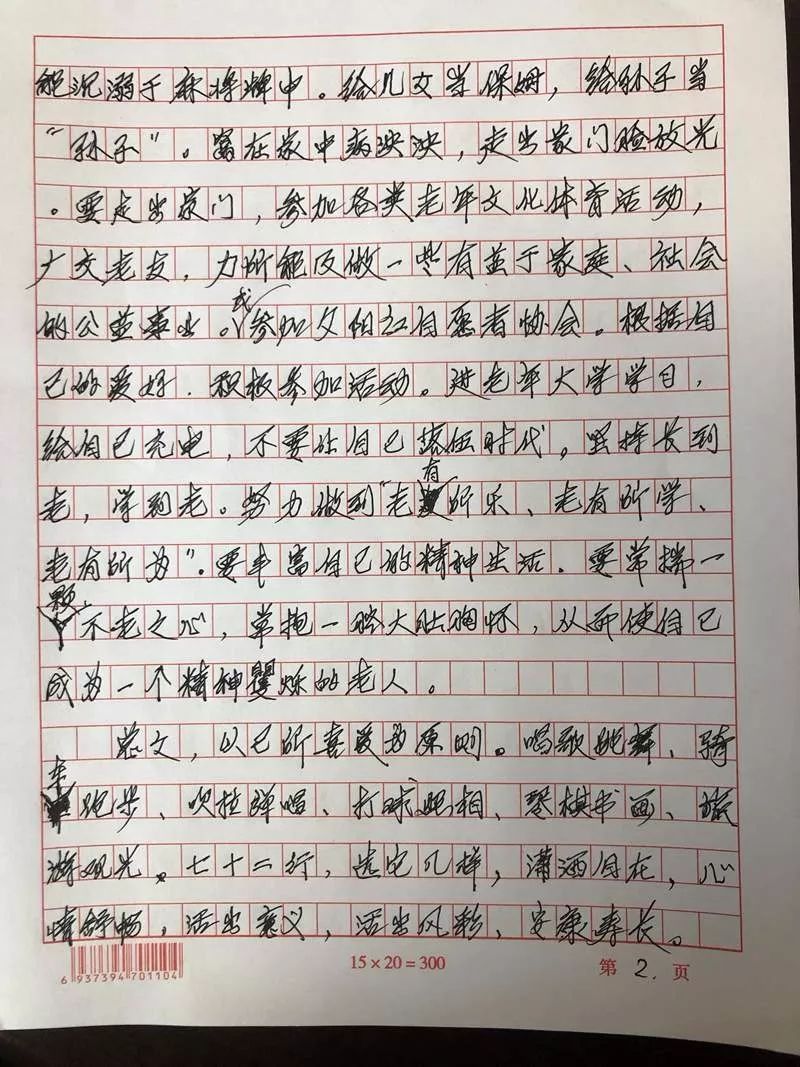 能沉溺于麻将牌中。给儿女当保姆，给孙子当
“孙子”。窝在家中病殃殃，走出家门脸放光
。要走出家门，参加各类老年文化体育活动，
广交老友，力所能及做一些有益于家庭、社会
的公益事业。或参加夕阳红自愿者协会。根据自
己的爱好．积极参加活动。进老年大学学习，
给自己充电，不要让自己落伍时代。坚持长到
老，学到老。努力做到“老有所乐、老有所学、
老有所为”．要丰富自己的精神生活．要常揣一
颗不老之心，常抱一腔大壮胸怀，从而使自己
成为一个精神矍烁的老人。
总之，以己所喜爱为原则。唱歌跳舞、骑
车跑步、吹拉弹唱、打球照相、琴棋书画、旅
游观光。七十二行，选它几样，潇洒自在，心
情舒畅，活出意义，活出风彩，安康寿长。
6 937394 701104
15×20=300
第 2. 页